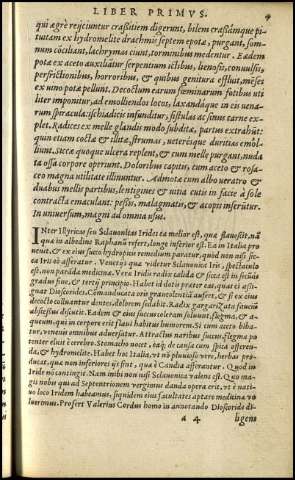 LIBER PRIMVS.
qui ægrè rejciuntur crassitiem digerunt, bilem crassámque pi-
tuitam ex hydromelite drachmis septem epotæ, purgant, som-
num cōciliant, lachrymas ciunt, torminibus medentur. Eædem
potæ ex aceto auxiliatur serpentium ictibus, lienosis, convulsis,
perfrictionibus, horroribus, & quibus genitura effluit, mēses
ex uino potæ pellunt. Decoctum earum fœminarum fotibus uti
liter imponitur, ad emolliendos locos, laxandáque in eis uena-
rum spiracula: ischiadicis infunditur, fistulas ac sinus carne ex-
plet. Radices ex melle glandis modo subditæ, partus extrahūt:
quin etiam coctæ & illitæ, strumas, ueterésque duritias emol-
liunt. Siccæ quoque ulcera replent, & cum melle purgant, nuda
ta ossa corpore operiunt. Doloribus capitis, cum aceto & rosa-
ceo magna utilitate illinuntur. Admotæ cum albo ueratro &
duabus mellis partibus, lentigines & uitia cutis in facie à sole
contracta emaculant: pessis, malagmatis, & acopis inserūtur.
In uniuersum, magni ad omnia usus.
INter Illyricas seu Sclauonitas Irides ea melior est, quæ
longe inferior est. Ea in Italia pro
uenit, & ex eius succo hydropicis remedium paratur, quod non nisi sic-
ca Iris id asserat. Venetijs qua videtur Sclauonica Iris,
est, non parua medicina. Vere Iridis radix calida & sicca est in secūdi
gradus fine, & tertij principio. Habet id dotis præter eas, quas ei assi-
gnat Dioscorides. Commanducata oris graueolentiā aufert, & si ex eius
decocto colluantur dentes, dolorem sedabit. Radix gargarizata
abscessus discutit. Eadem & eius succus coleram soluunt, flegma, &
aquam, quæ in corpore erit flaui hulcusi humorem. Si cum aceto biba-
tur, venenis omnibus aduersatur. Attractus naribus succus, flegma po
tenter eluit è cerebro. Stomacho nocet,
& hydromelite. Habet hoc Italia, vt nō
ducat, quæ non inferiores ijs sint, quæ è Candia afferantur. Quod in
Iride nō contingit. Nam mihi non nisi Sclauonica valens est.
magis nobis qui ad Septentrionem vergimus danda opera erit, vt è nati-
uo loco Iridem habeamus, siquidem eius facultates aptare medicina vo
luerimus. Profert Valerius Cordus homo in annotando Dioscoride di-
a 4
ligens